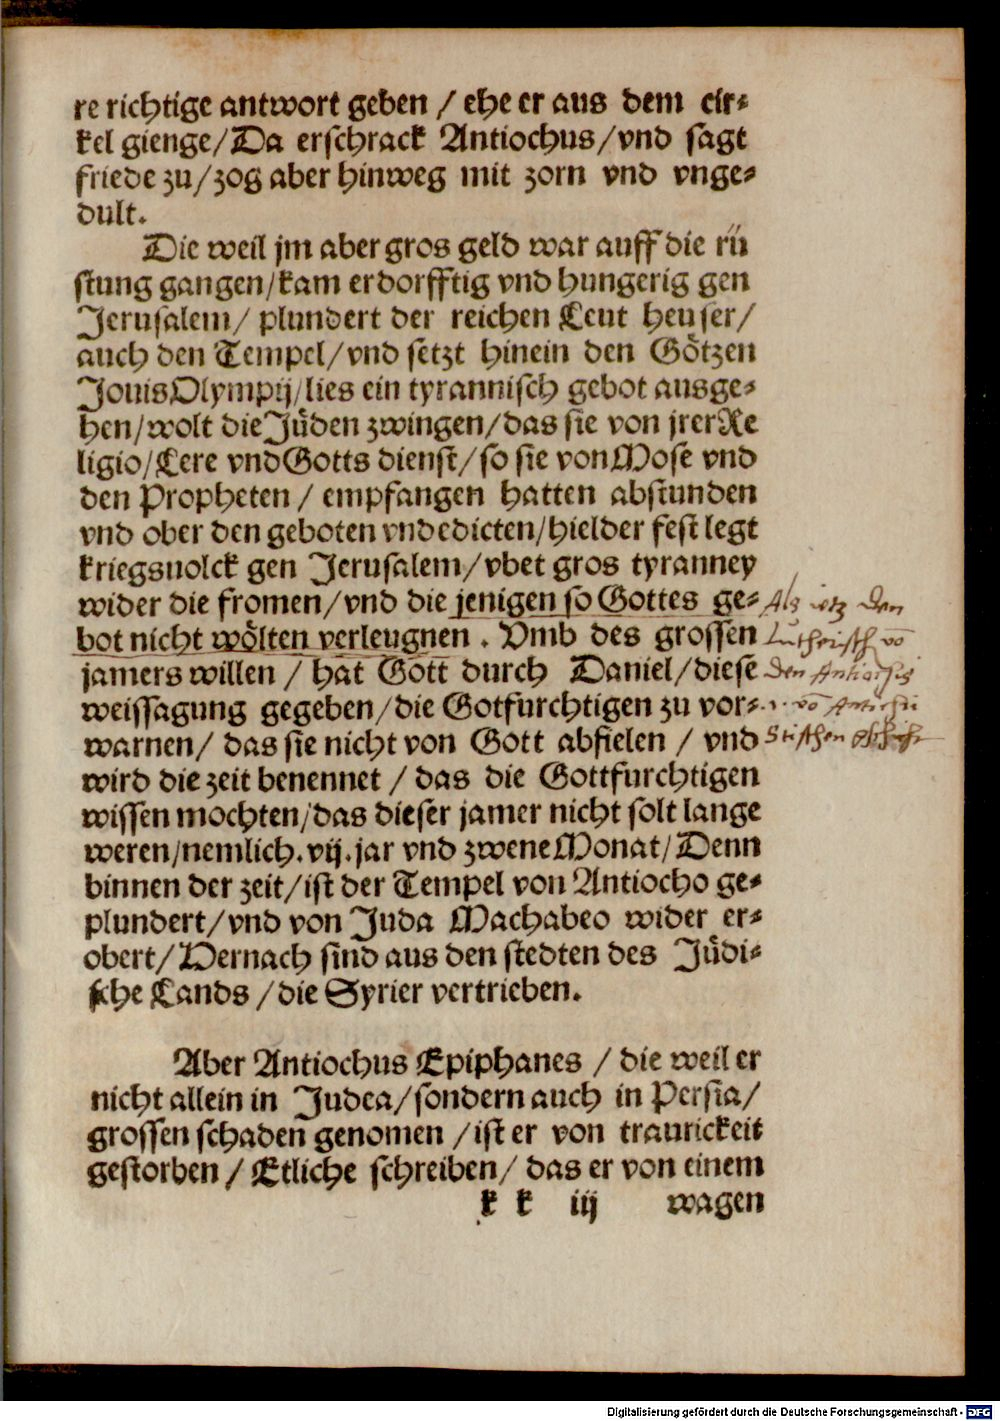 re richtige antwort geben / ehe er aus dem cir-
kel gienge/Da erschrack Antiochus/vnd sagt
friede zu/zog aber hinweg mit zorn vnd vnge-
dult.
Die weil jm aber gros geld war auff die rü
stung gangen/kam er dorfftig vnd hungerig gen
Jerusalem/ plundert der reichen Leut heuser/
auch den Tempel/vnd setzt hinein den Götzen
Jouis Olympij/lies ein tyrannisch gebot ausge-
hen/wolt die Jüden zwingen/das sie von jrer Re
ligio/Lere vnd Gotts dienst/so sie von Mose vnd
den Propheten / empfangen hatten abstunden
vnd ober den geboten vnd edicten/hielder fest legt
kriegsuolck gen Jerusalem/vbet gros tyranney
wider die fromen/vnd die jenigen so Gottes ge-
bot nicht wölten verleugnen . Vmb des grossen
jamers willen / hat Gott durch Daniel/diese
weissagung gegeben/die Gotfurchtigen zu vor-
warnen/ das sie nicht von Gott abfielen / vnd
wird die zeit benennet / das die Gottfurchtigen
wissen mochten/das dieser jamer nicht solt lange
weren/nemlich.vij.jar vnd zwene Monat/Denn
binnen der zeit/ist der Tempel von Antiocho ge-
plundert/vnd von Juda Machabeo wider er-
obert/Dernach sind aus den stedten des Jüdi-
sche Lands /die Syrier vertrieben.
Aber Antiochus Epiphanes / die weil er
nicht allein in Judea/sondern auch in Persia/
grossen schaden genomen /ist er von traurickeit
gestorben / Etliche schreiben/ das er von einem
k k iij wagen
Als itz den
Lutherisch vō
den
vō
Digitalisierung gefördert durch die Deutsche Forschungsgemeinschaft - DFG